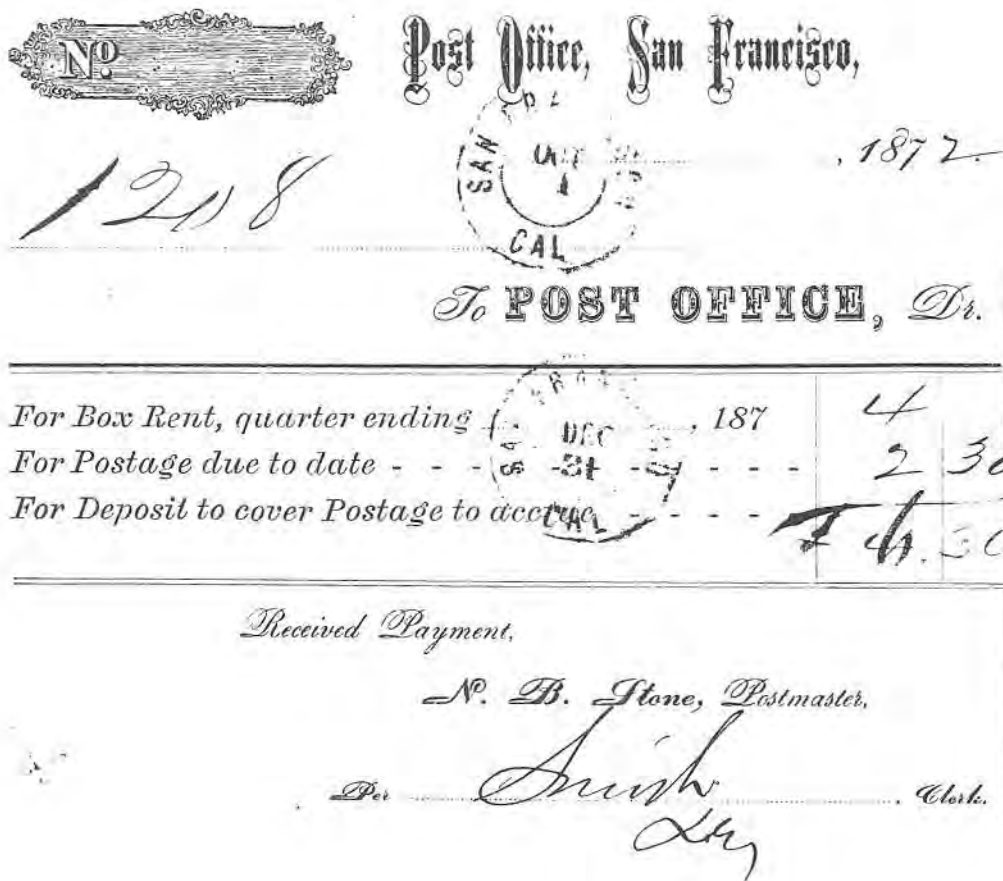 No.
Post Office, San Francisco,
SAN
OCT
1
CAL
, 1872
1208
To POST OFFICE, Dr.
For Box Rent, quarter ending , 187 4
DEC
31
CAL
For Postage due to date - - - - - - - - 2 30
For Deposit to cover Postage to accrue - - - -
6.30
Received Payment,
N. B. Stone, Postmaster,
Per Smith , Clerk.